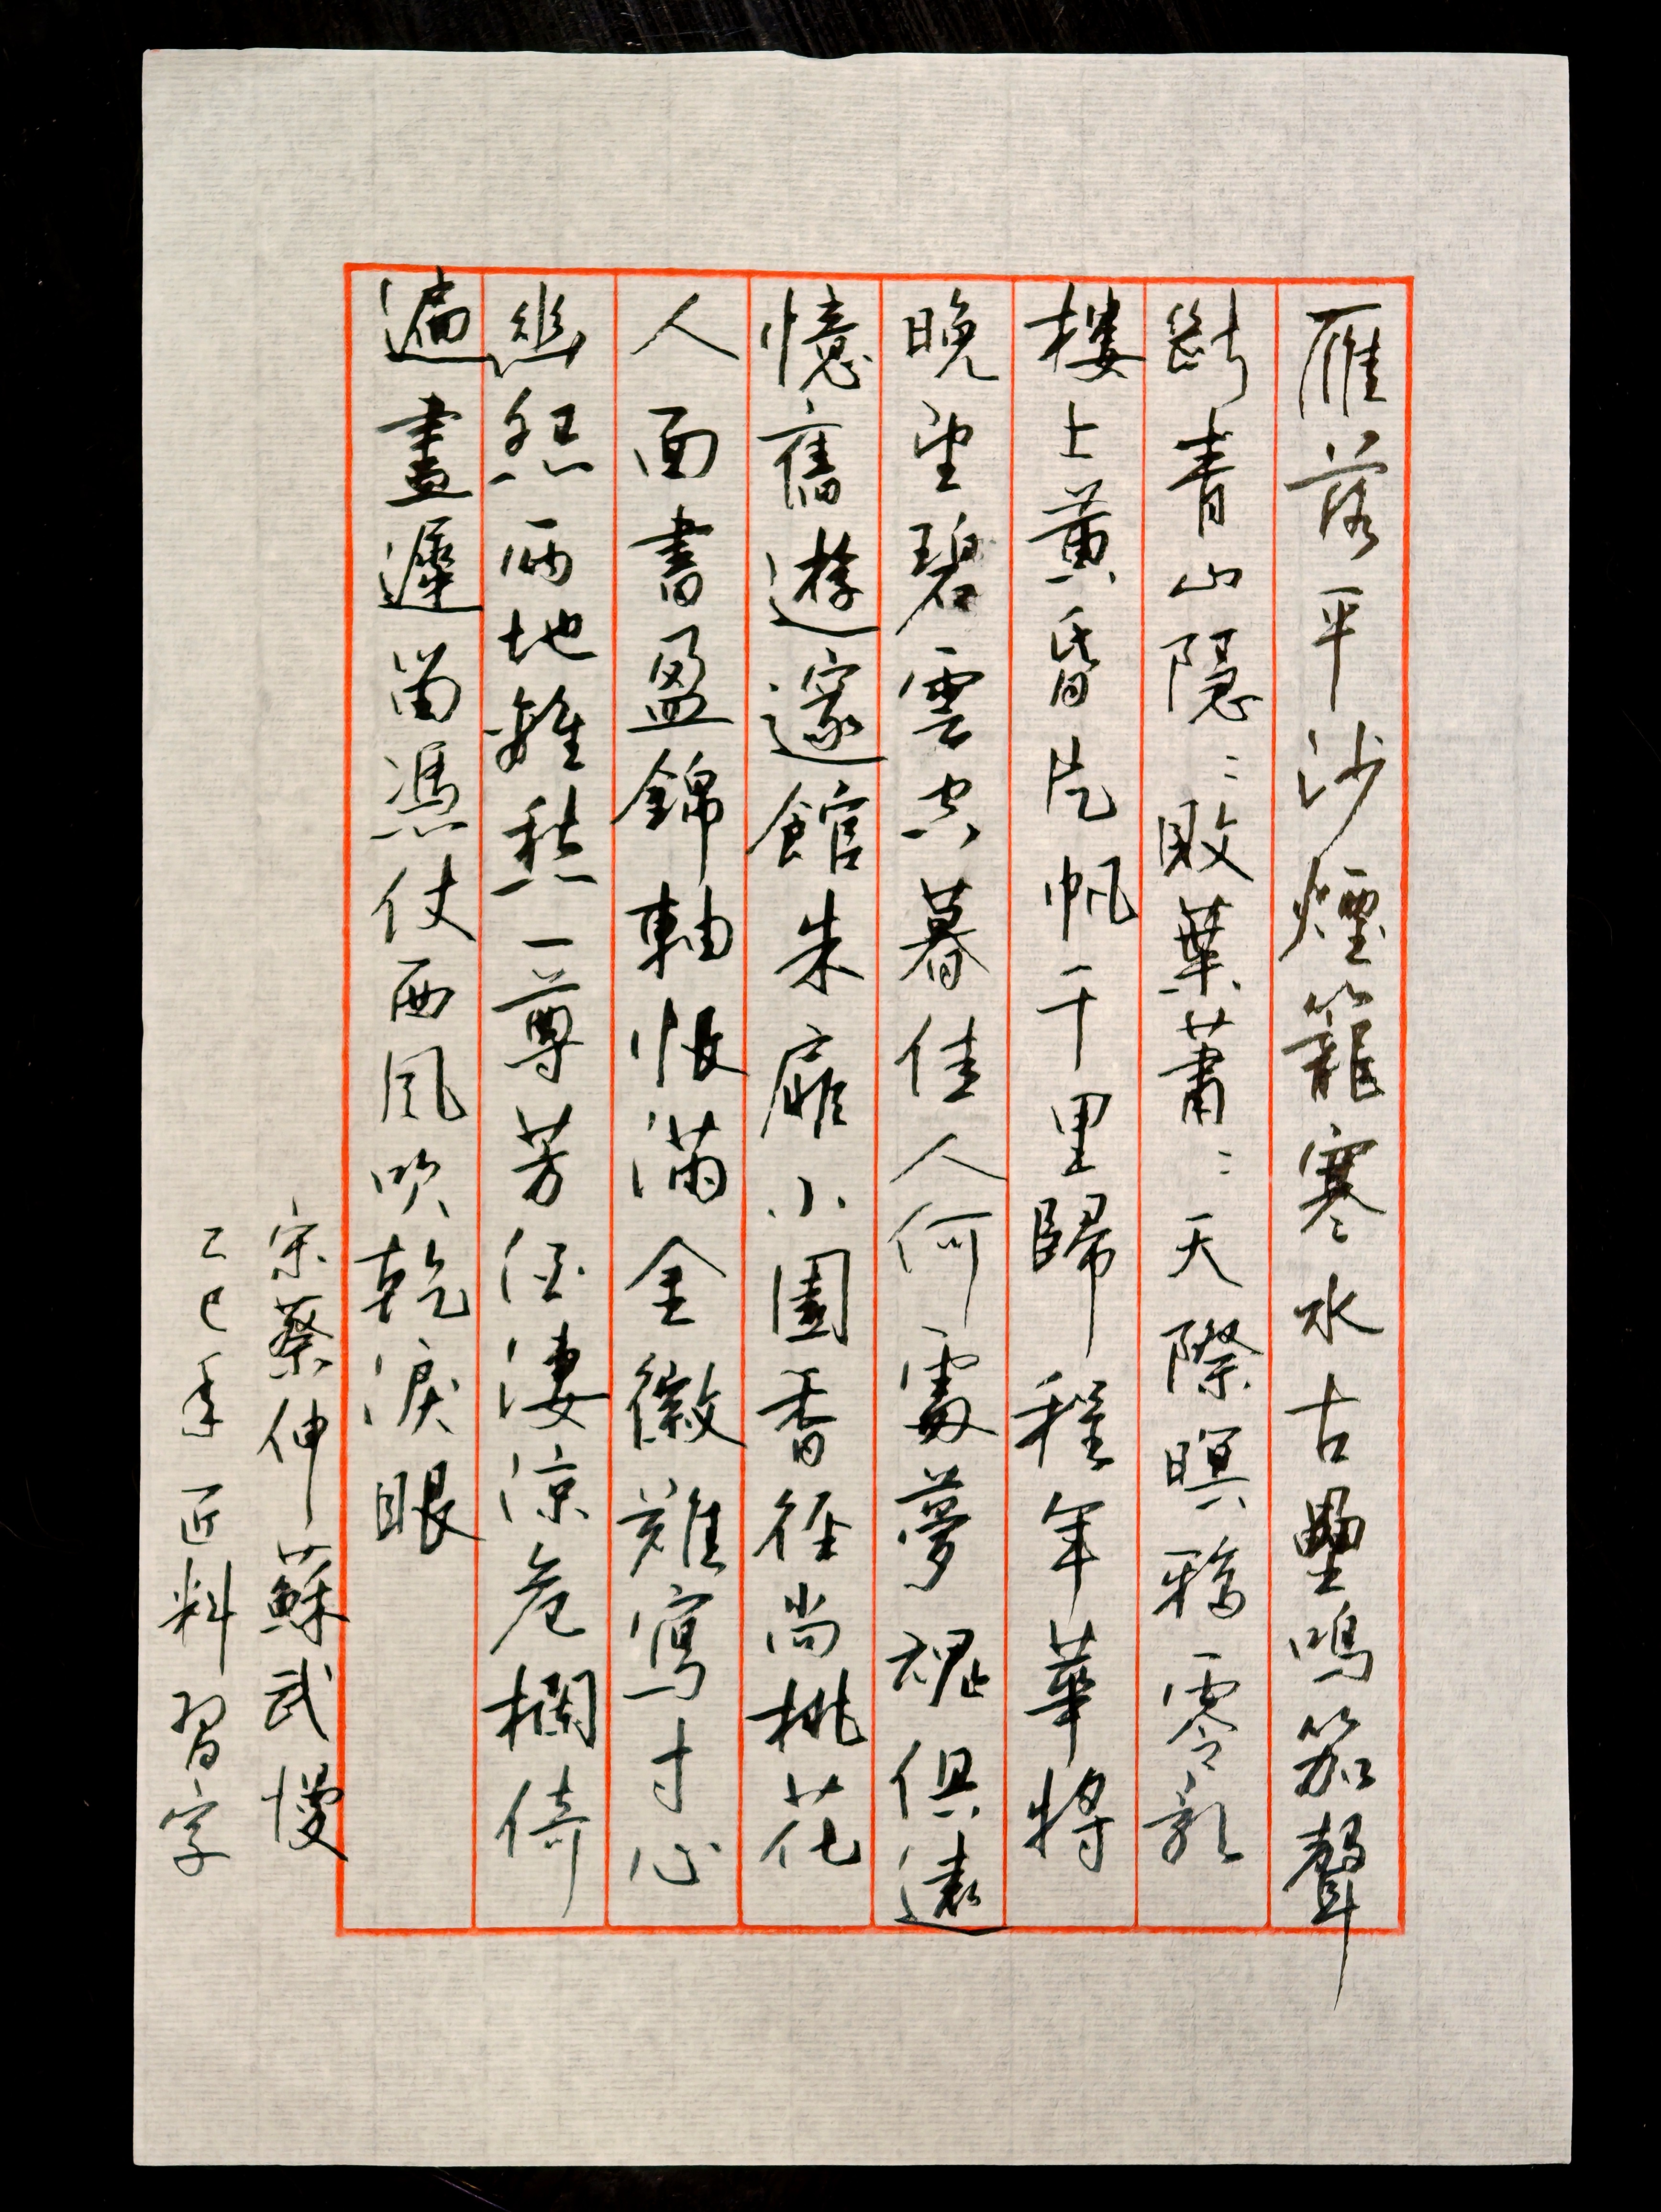 雁落平沙煙籠寒水古壘鳴笳聲
斷青山隱〻敗葉蕭〻天際暝鴉零亂
樓上黄昏片帆千里歸程年華將
晚望碧雲空暮佳人何處夢魂俱遠
憶舊遊邃館朱扉小園香徑尚桃花
人面書盈錦軸恨滿金徽難寫寸心
幽怨兩地離愁一尊芳酒淒涼危欄倚
遍盡遲留憑仗西風吹乾淚眼
宋蔡伸蘇武慢
乙巳年匠料習字